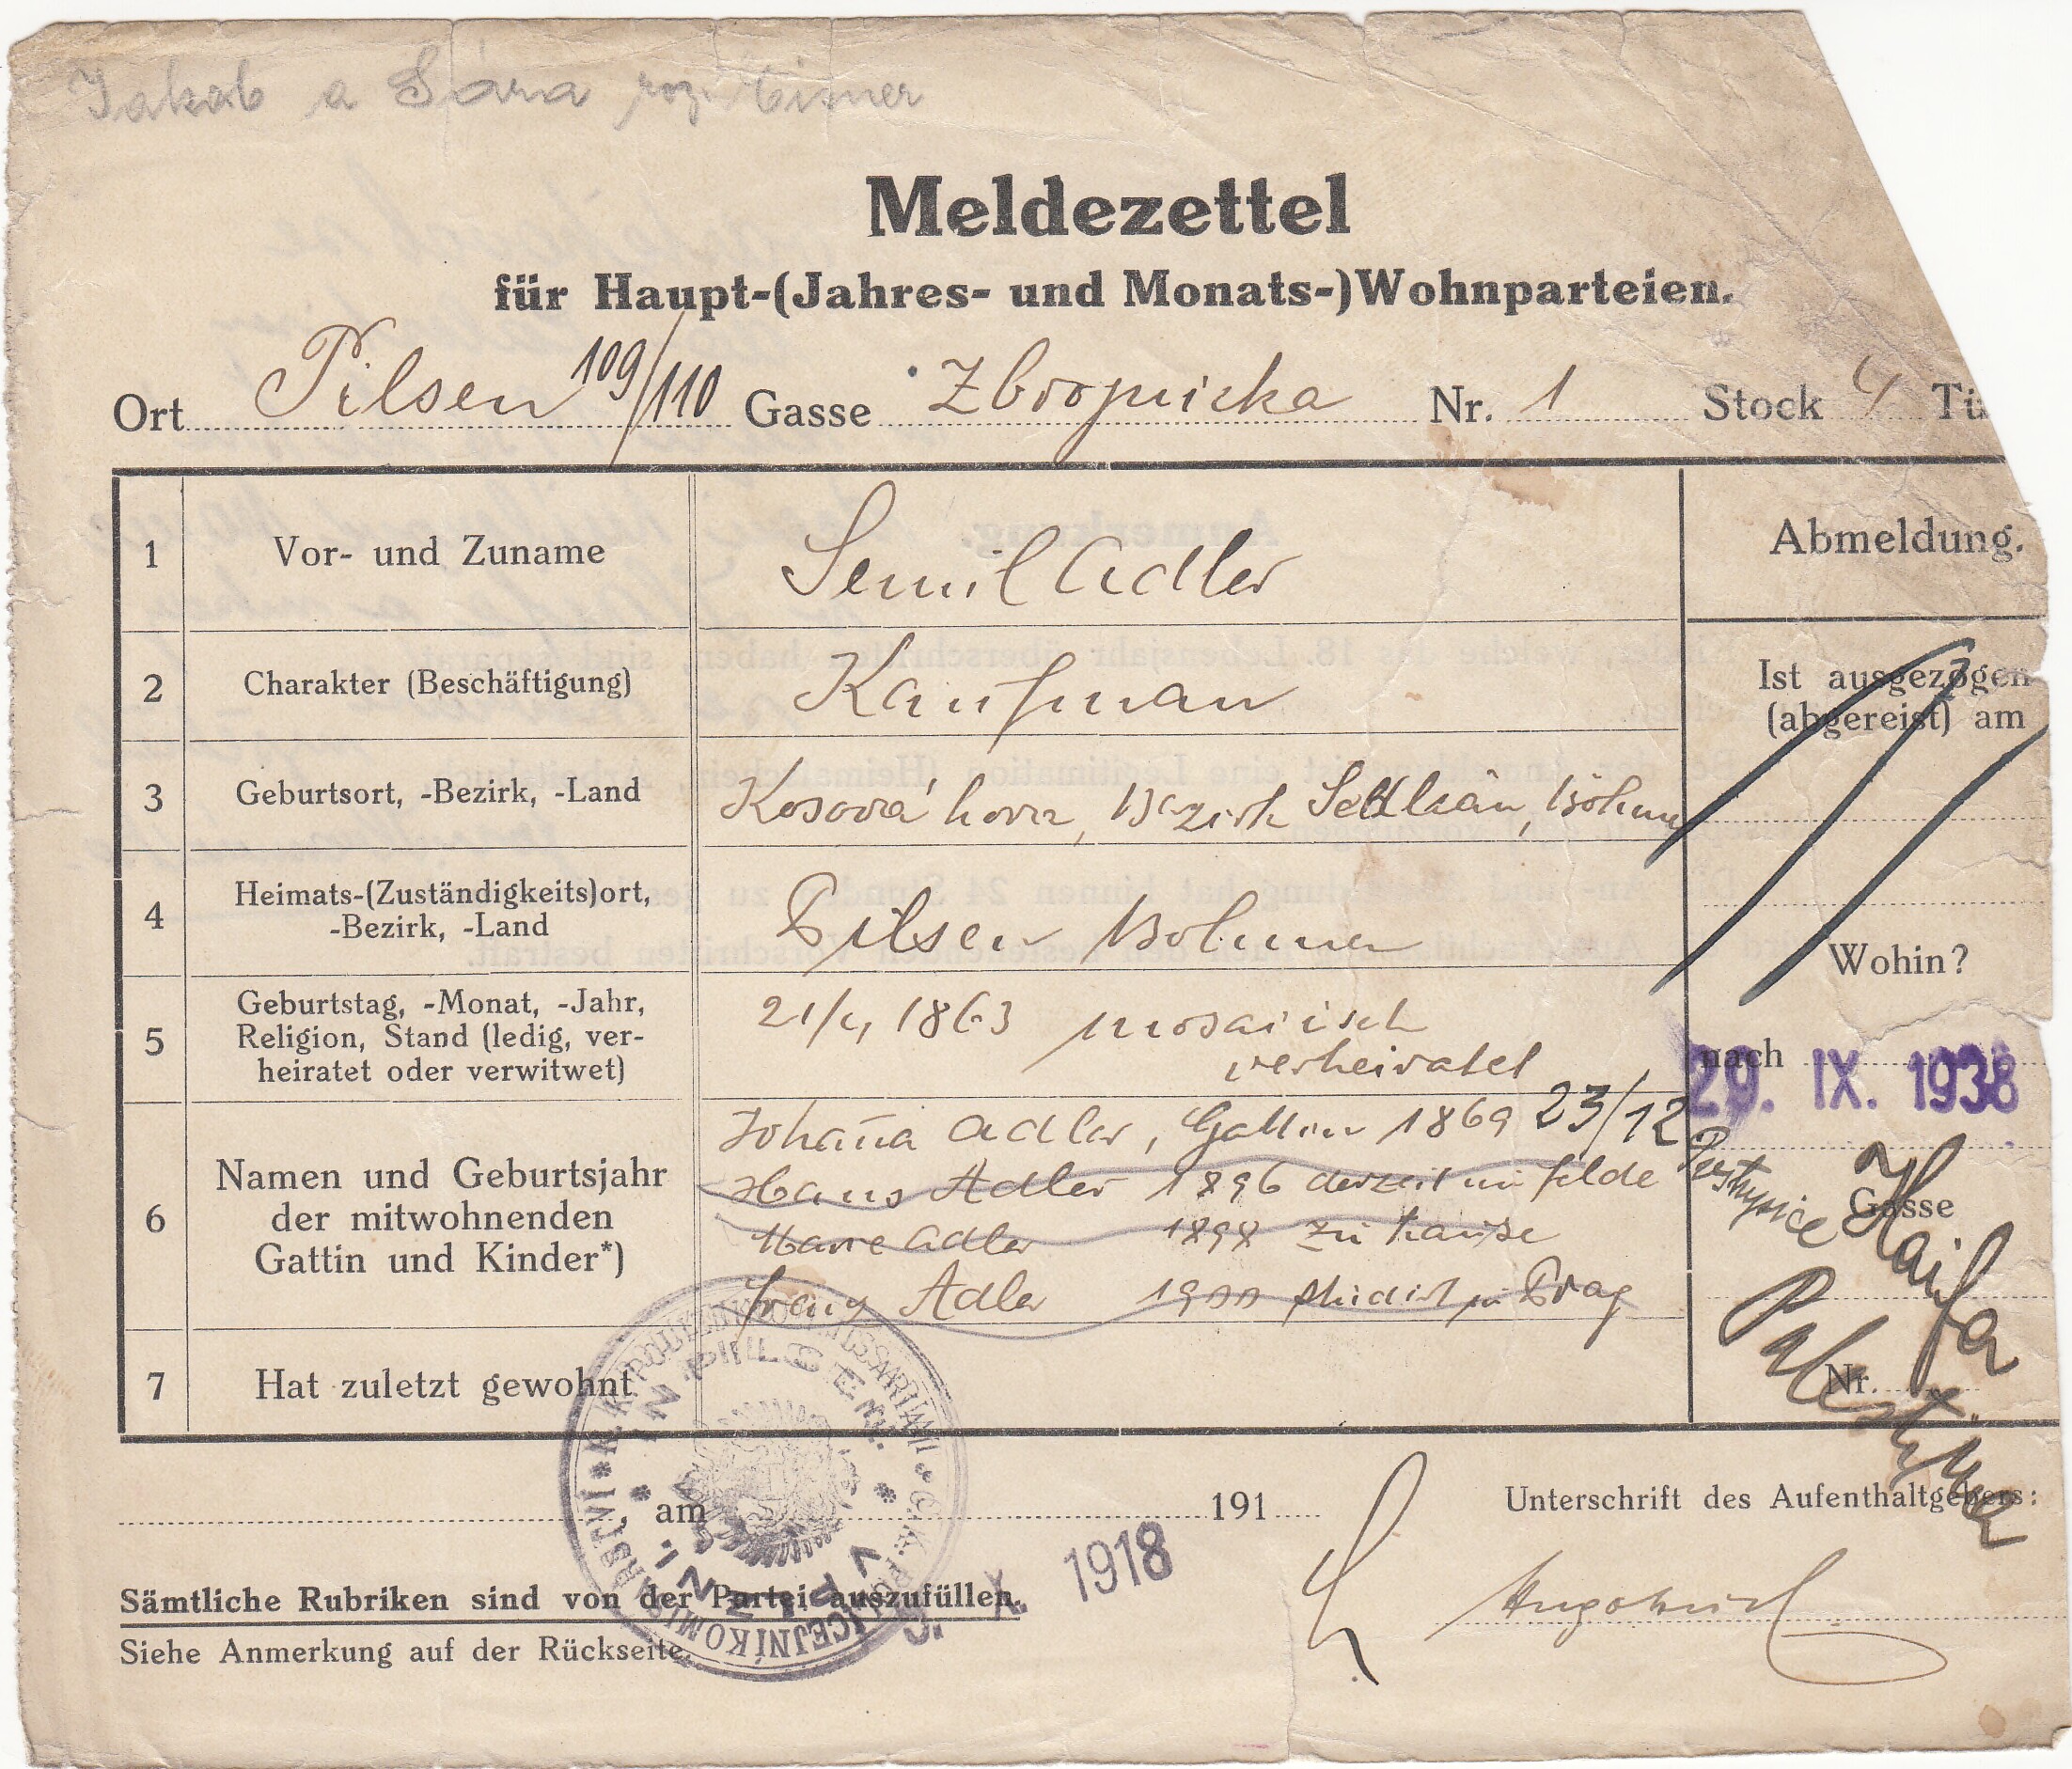 Jakob a Sára roz. Eisner
Meldezettel
für Haupt-(Jahres- und Monats-)Wohnparteien.
Ort Pilsen 109/110 Gasse Nr. 1 Stock 4 Tü
1 Vor- und Zuname Adler
Abmeldung.
2 Charakter (Beschäftigung) Kaufman
Ist ausgezogen
(abgereist) am
3 Geburtsort, -Bezirk, -Land Kosova hora, Bezirk Böhmen
4 Heimats-(Zuständigkeits)ort,
-Bezirk, -Land
Pilsen Böhmen
Wohin?
5 Geburtstag, -Monat, -Jahr,
Religion, Stand (ledig, ver-
heiratet oder verwitwet)
1863 mosaisch
verheiratet
nach
29. IX. 1938
6 Namen und Geburtsjahr
der mitwohnenden
Gattin und Kinder*)
Johana Adler, Gattin 1869 23/12
Hans Adler 1896 derzeit im felde
Marie Adler 1898 zu hause
Franz Adler 1900 studirt in Prag
Gasse
Haifa
Palestyna
Nr.
7 Hat zuletzt gewohnt
K. K. POLIZEIKOMMISSARIAT
IN PILSEN.
C. K. POLICEJNÍ KOMISAŘSTVÍ
V PLZNI.
, am 191
X. 1918
Unterschrift des Aufenthaltgebers:
Sämtliche Rubriken sind von der Partei auszufüllen.
Siehe Anmerkung auf der Rückseite.